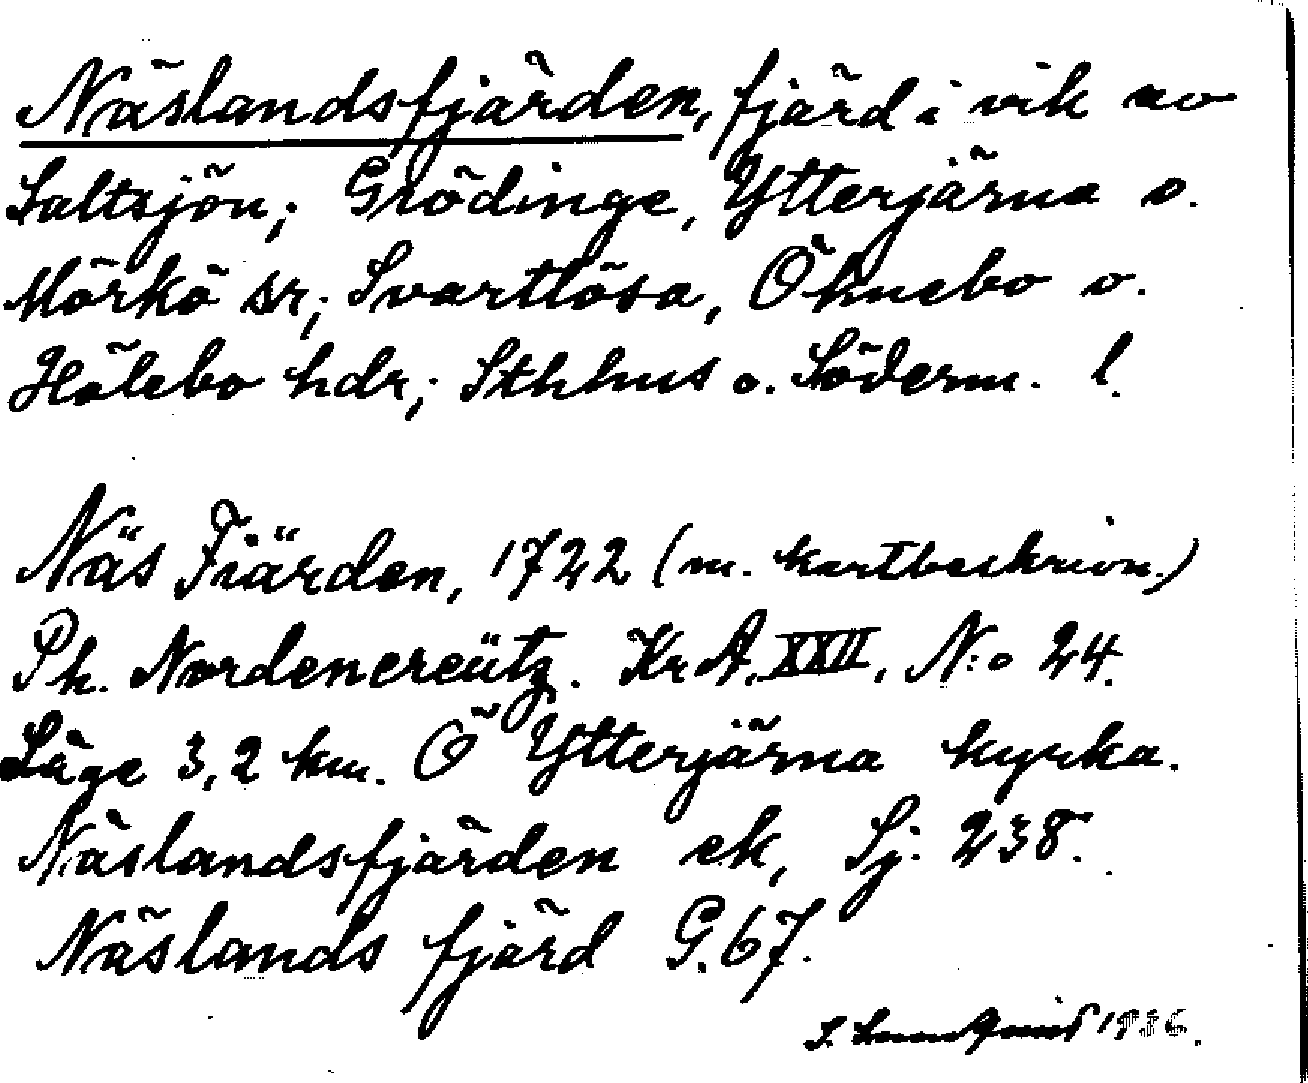 Näslandsfjärden, fjärd i vik av
Saltsjön; Grödinge, Ytterjärna o.
Mörkö sr; Svartlösa, Öknebo o.
Hölebo hdr; Sthlms o. Söderm. l.
Näs Fiärden, 1722 (m. kartbeskrivn.)
Ph. Nordencreütz. KrA. XXII, N:o 24.
Läge 3,2 km. Ö Ytterjärna kyrka.
Näslandsfjärden ek, Sj. 238.
Näslands fjärd G. 67.
S. 1936.